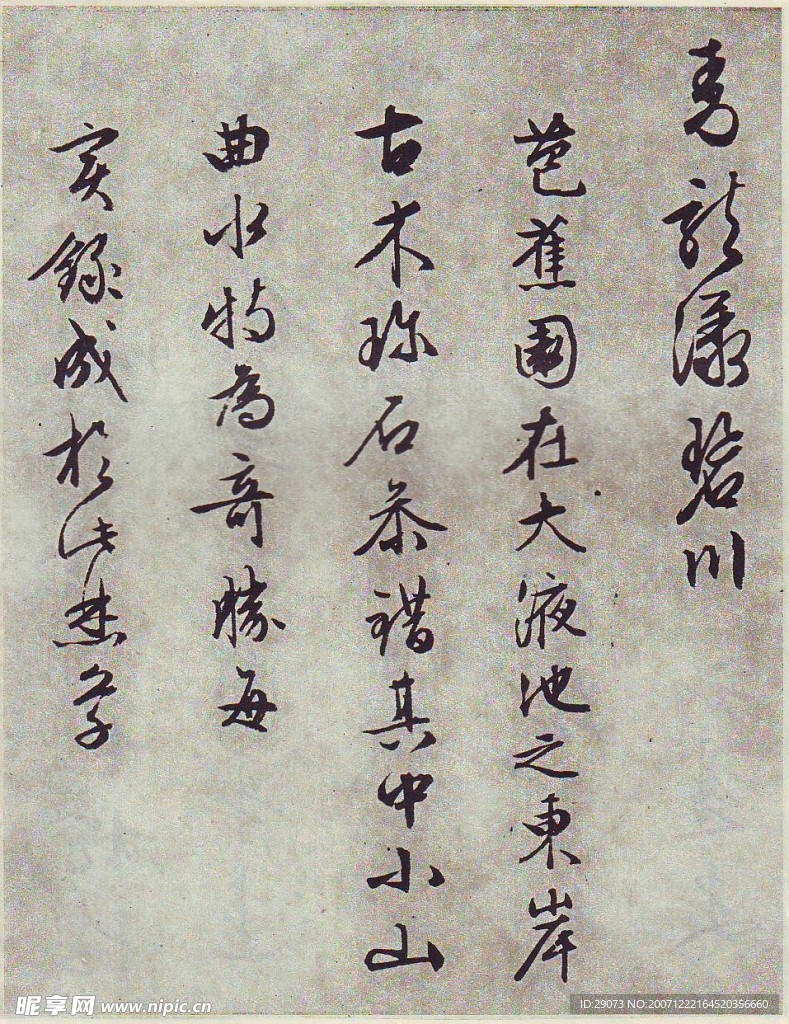 青龍漾碧川
芭蕉園在大液池之東岸
古木珍石参錯其中小山
曲水特為奇勝每
实錄成於此焚草
昵享网 www.nipic.cn
ID:29073 NO:20071222164520356660